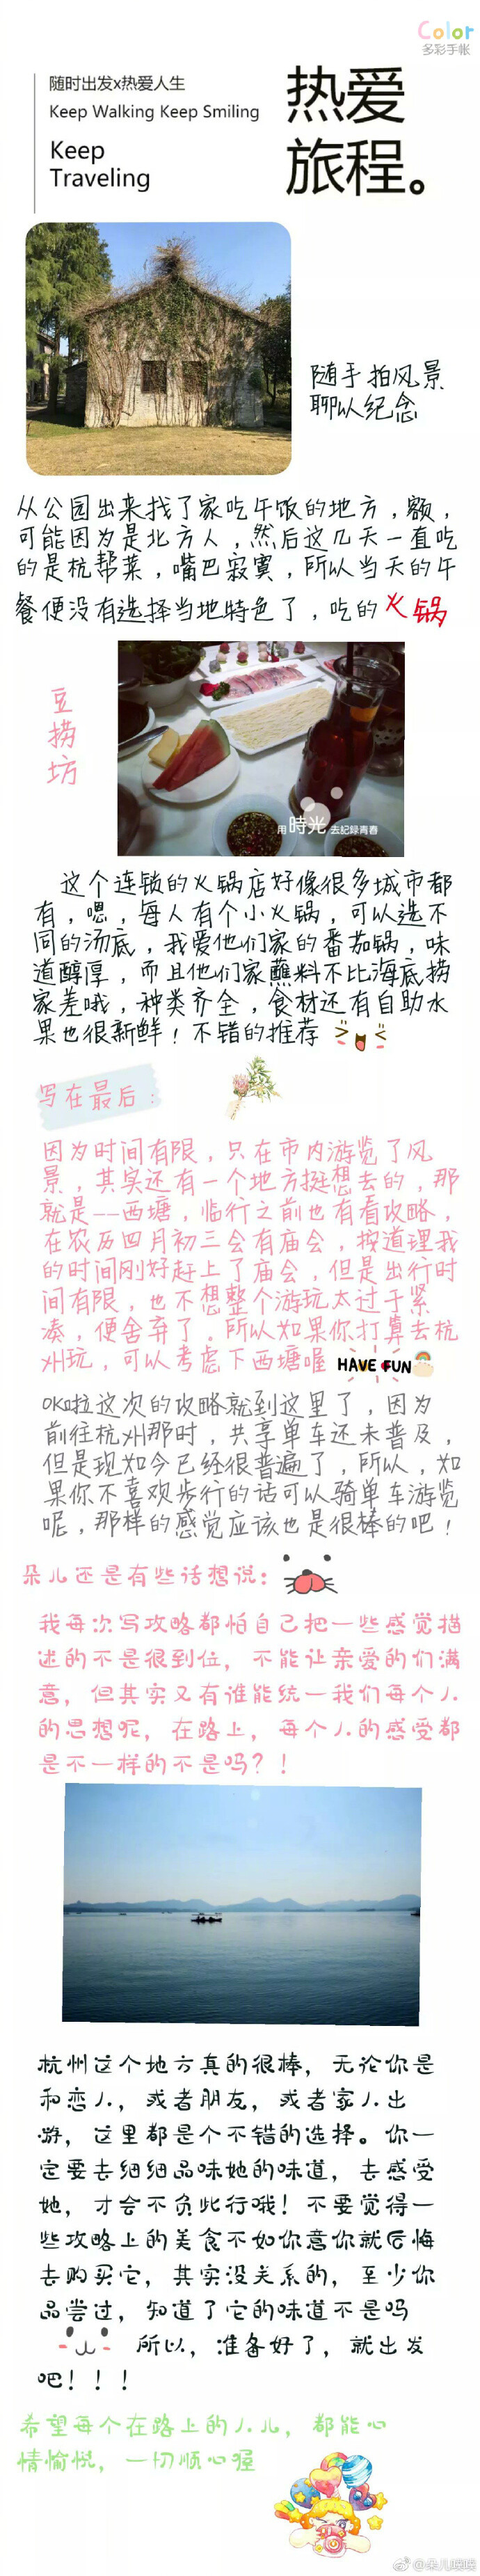 Color
多彩手帐
随时出发x热爱人生
Keep Walking Keep Smiling
Keep
Traveling
热爱
旅程。
随手拍风景
聊以纪念
从公园出来找了家吃午饭的地方，额，
可能因为是北方人，然后这几天一直吃
的是杭帮菜，嘴巴寂寞，所以当天的午
餐便没有选择当地特色了，吃的火锅
豆
捞
坊
用時光去記録青春
这个连锁的火锅店好像很多城市都
有，嗯，每人有个小火锅，可以选不
同的汤底，我爱他们家的番茄锅，味
道醇厚，而且他们家蘸料不比海底捞
家差哦，种类齐全，食材还有自助水
果也很新鲜！不错的推荐
写在最后：
因为时间有限，只在市内游览了风
景，其实还有一个地方挺想去的，那
就是——西塘，临行之前也有看攻略，
在农历四月初三会有庙会，按道理我
的时间刚好赶上了庙会，但是出行时
间有限，也不想整个游玩太过于紧
凑，便舍弃了。所以如果你打算去杭
州玩，可以考虑下西塘喔 HAVE FUN
OK啦这次的攻略就到这里了，因为
前往杭州那时，共享单车还未普及，
但是现如今已经很普遍了，所以，如
果你不喜欢步行的话可以骑单车游览
呢，那样的感觉应该也是很棒的吧！
朵儿还是有些话想说：
我每次写攻略都怕自己把一些感觉描
述的不是很到位，不能让亲爱的们满
意，但其实又有谁能统一我们每个人
的思想呢，在路上，每个人的感受都
是不一样的不是吗？！
杭州这个地方真的很棒，无论你是
和恋人，或者朋友，或者家人出
游，这里都是个不错的选择。你一
定要去细细品味她的味道，去感受
她，才会不负此行哦！不要觉得一
些攻略上的美食不如你意你就后悔
去购买它，其实没关系的，至少你
品尝过，知道了它的味道不是吗
所以，准备好了，就出发
吧！！！
希望每个在路上的人儿，都能心
情愉悦，一切顺心喔
@朵儿暖暖